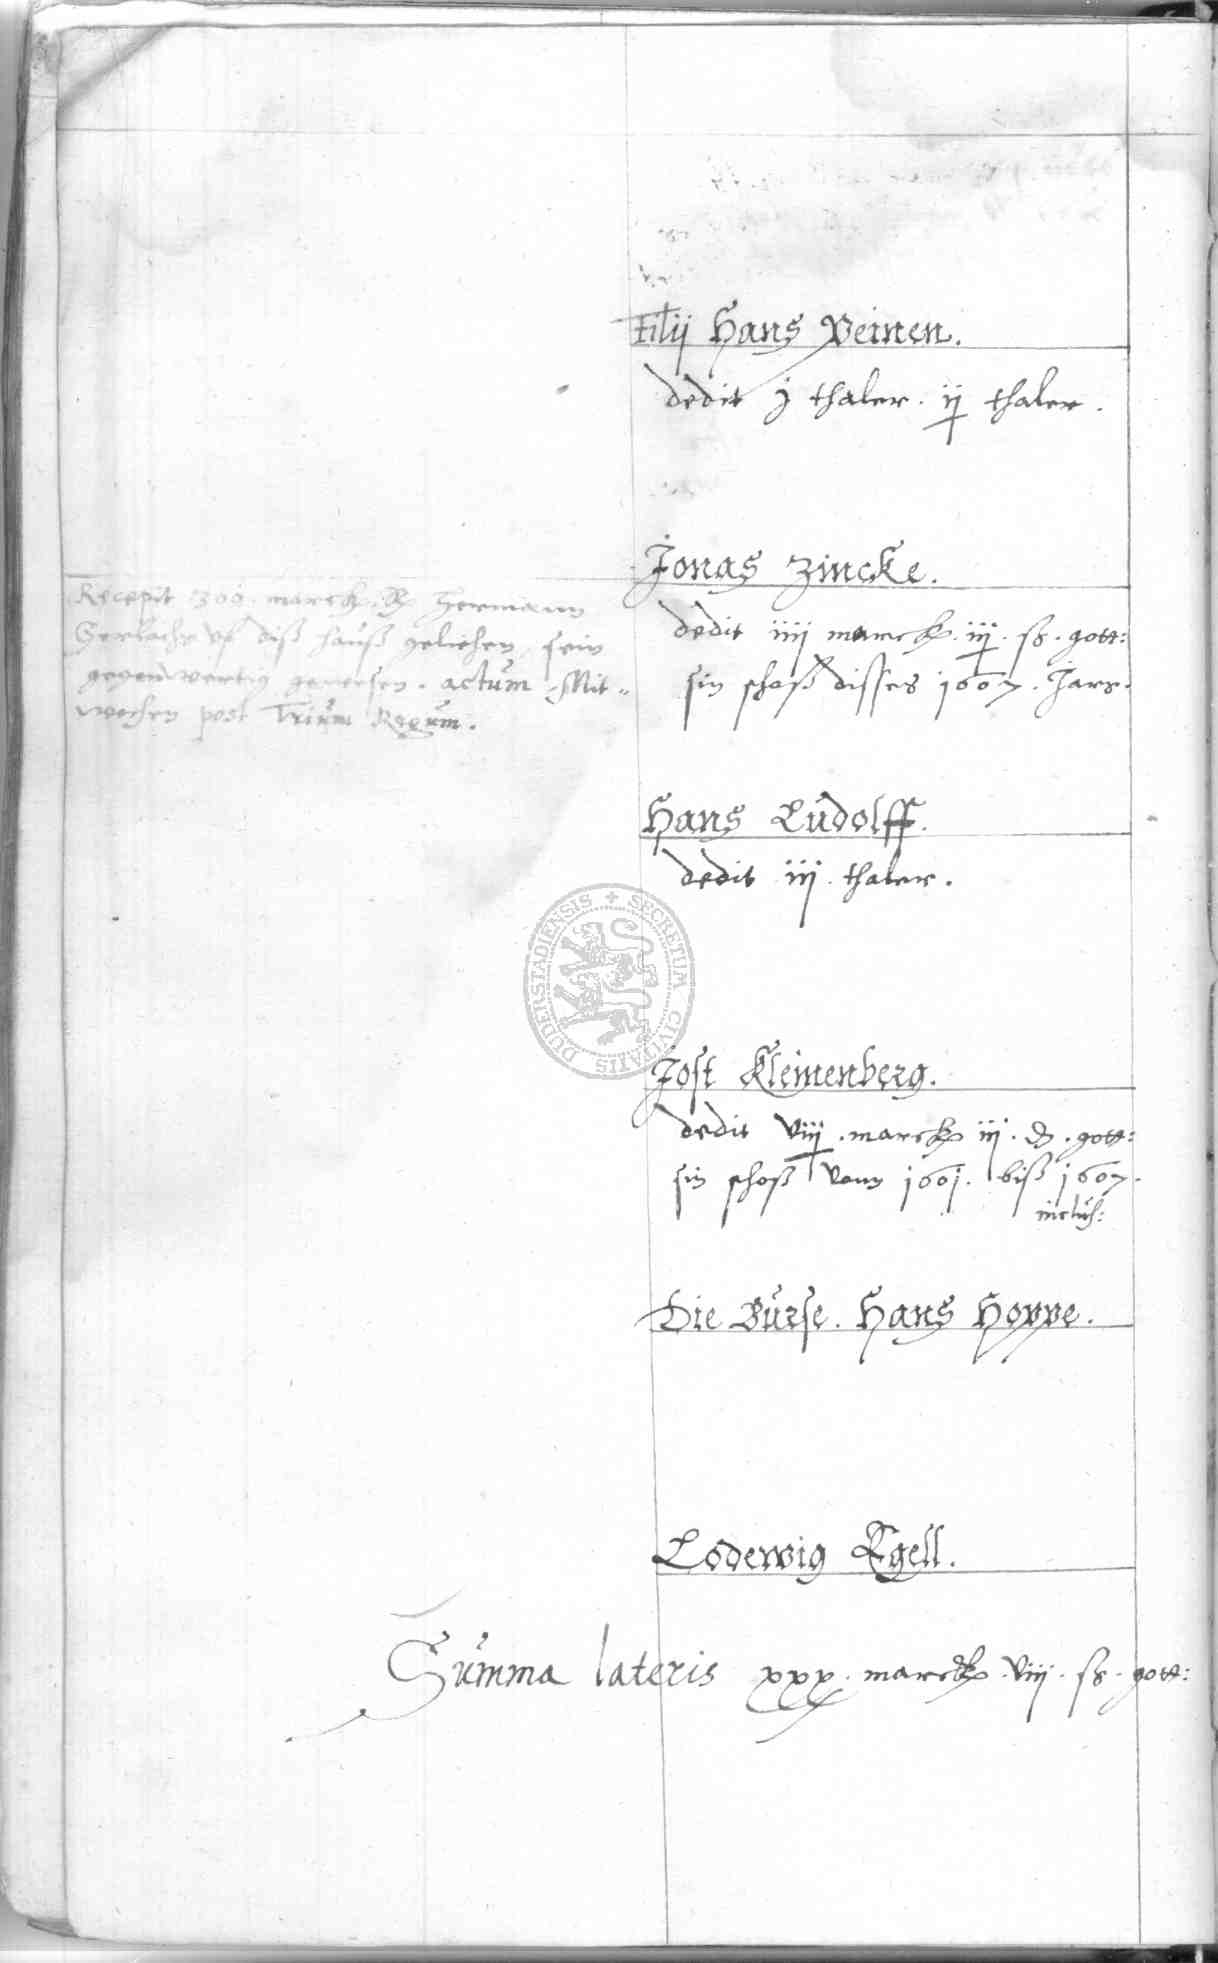 Filij Hans Peinen.
dedit j thaler. ij thaler.
Jonas Zincke.
dedit iiij marck. iij. ß. gott:
sin schoß disses 1607. Jars.
Recepit 300. marck. Hermann
Gerlache uf diß hauß geliehen, sein
gegenwertig gewesen. actum Mit-
wochen post Trium Regum.
Hans Ludolff.
dedit iij. thaler.
SECRETUM CIVITATIS DUDERSTADIENSIS
Jost Kleinenberg.
dedit viij. marck iij. gott:
sin schoß vonn 1601. biß 1607.
inclus:
Die Burse. Hans Hoppe.
Lodewig Egell.
Summa lateris xxx. marck. viij. ß. gott: